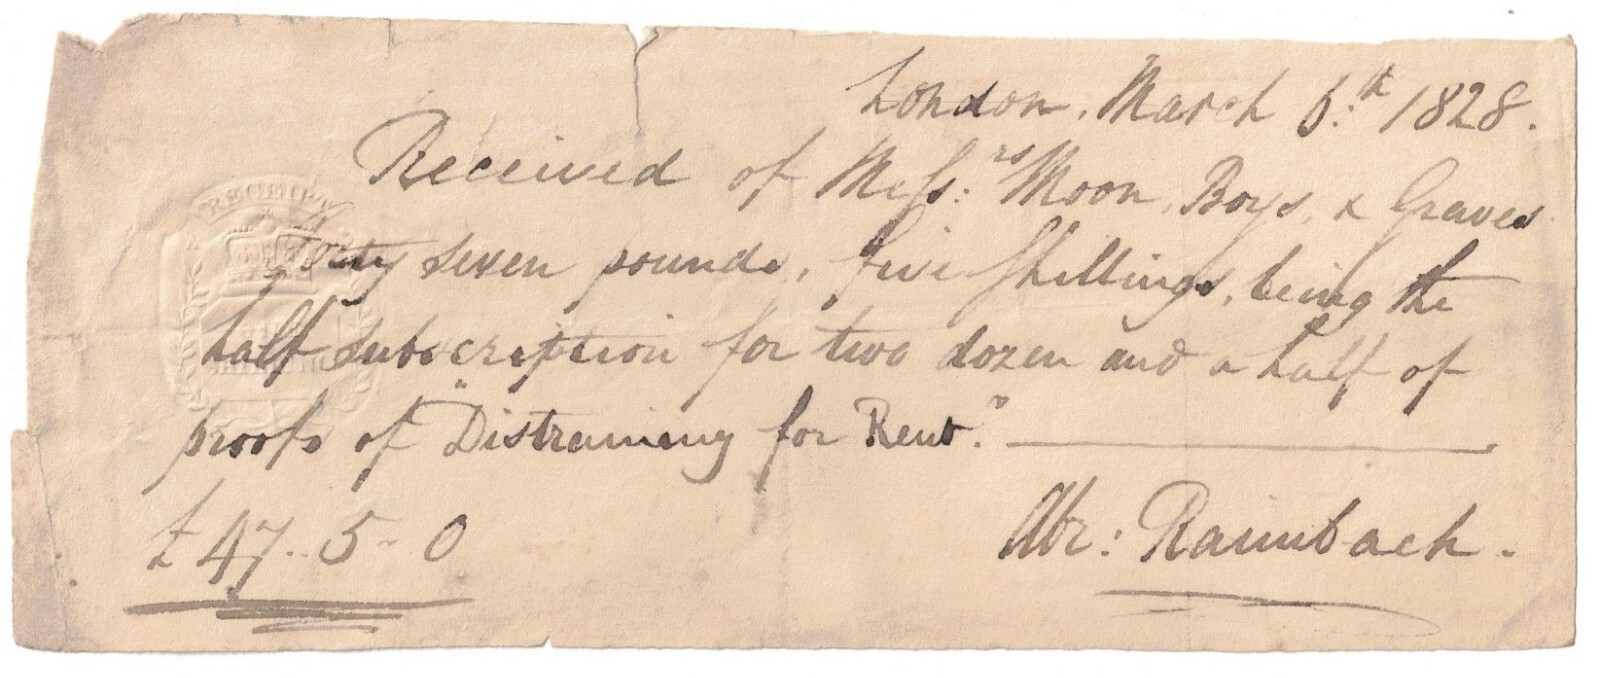 London, March 6.th 1828.
Received of Mess:rs Moon, Boys, & Graves
forty seven pounds, five shillings, being the
half subscription for two dozen and a half of
proofs of "Distraining for Rent."
£47-5-0
Abr: Raimbach.
RECEIPT